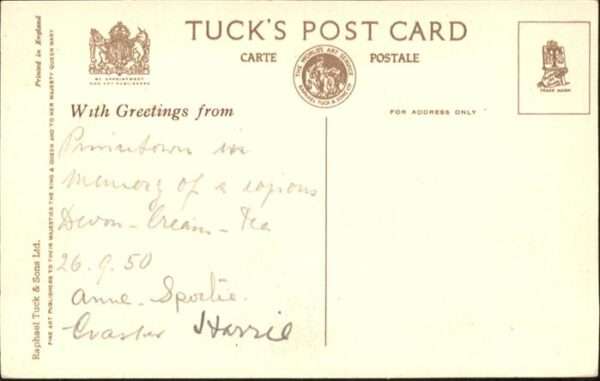 TUCK'S POST CARD
CARTE POSTALE
BY APPOINTMENT
FINE ART PUBLISHERS
THE WORLD'S ART SERVICE
RAPHAEL TUCK & SONS LTD
TRADE MARK
With Greetings from
FOR ADDRESS ONLY
Princetown in
memory of a copious
Devon-Cream-Tea
26.9.50
Anne. Sportie.
Craster Harrie
Printed in England
Raphael Tuck & Sons Ltd.
FINE ART PUBLISHERS TO THEIR MAJESTIES THE KING & QUEEN AND TO HER MAJESTY QUEEN MARY